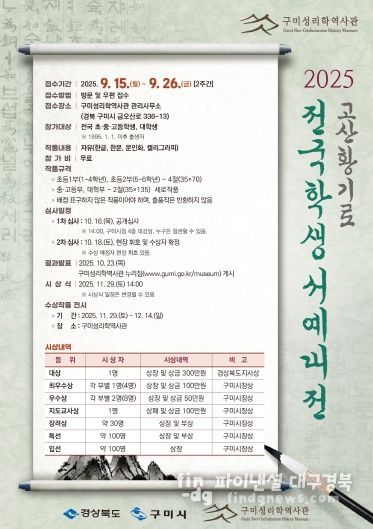 구미성리학역사관
Gumi Neo-Confucianism History Museum
2025
고산황기로
전국학생서예대전
접수기간 | 2025. 9. 15.(월) ~ 9. 26.(금) [2주간]
접수방법 | 방문 및 우편 접수
접수장소 | 구미성리학역사관 관리사무소
(경북 구미시 금오산로 336-13)
참가대상 | 전국 초·중·고등학생, 대학생
※ 1995. 1. 1. 이후 출생자
작품내용 | 자유(한글, 한문, 문인화, 캘리그라피)
참 가 비 | 무료
작품규격
◦ 초등1부(1~4학년), 초등2부(5~6학년) – 4절(35×70)
◦ 중·고등부, 대학부 – 2절(35×135) 세로작품
◦ 배접·표구하지 않은 작품이어야 하며, 출품작은 반환하지 않음
심사일정
◦ 1차 심사 : 10. 16.(목), 공개심사
※ 14:00, 구미시청 4층 대강당, 누구든 참관할 수 있음.
◦ 2차 심사 : 10. 18.(토), 현장 휘호 및 수상자 확정
※ 수상 예정자 현장 휘호 있음.
결과발표 | 2025. 10. 23.(목)
구미성리학역사관 누리집(www.gumi.go.kr/museum) 게시
시 상 식 | 2025. 11. 29.(토) 14:00
※ 시상식 일정은 변경될 수 있음
수상작품 전시
◦ 기 간 : 2025. 11. 29.(토) ~ 12. 14.(일)
◦ 장 소 : 구미성리학역사관
시상내역
등 위 시 상 자 시상내역 비 고
대상 1명 상장 및 상금 300만원 경상북도지사상
최우수상 각 부별 1명(4명) 상장 및 상금 100만원 구미시장상
우수상 각 부별 2명(8명) 상장 및 상금 50만원 구미시장상
지도교사상 1명 상패 및 상금 100만원 구미시장상
장려상 약 30명 상장 및 부상 구미시장상
특선 약 100명 상장 및 부상 구미시장상
입선 약 100명 상장 구미시장상
fin 파이낸셜 대구경북
-dg findgnews.com
경상북도
구미시
구미성리학역사관
Gumi Neo-Confucianism History Museum